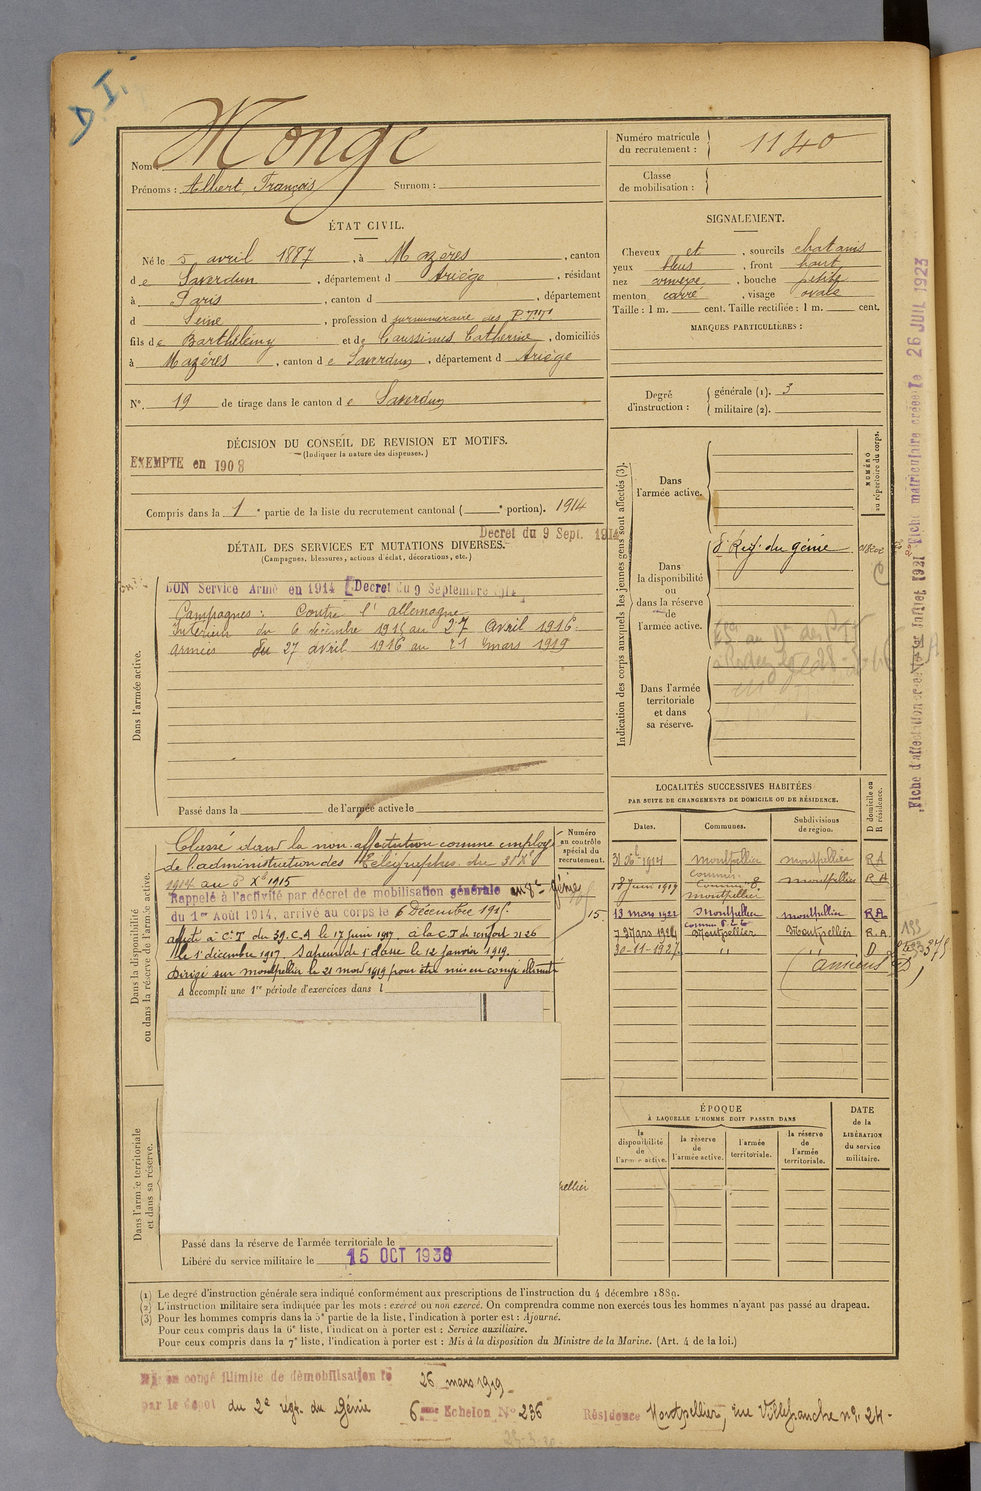 D I.
Nom : Monge
Prénoms : Albert François Surnom :
Numéro matricule du recrutement : 1140
Classe de mobilisation :
ÉTAT CIVIL.
Né le 5 avril 1887, à Mazères, canton
de Saverdun, département d Ariège, résidant
à Paris, canton d , département
d Seine, profession d surnumeraire des P.T.T
fils de Barthélémy et de Caussinus Catherine, domiciliés
à Mazères, canton de Saverdun, département d Ariège
N° 19 de tirage dans le canton de Saverdun
DÉCISION DU CONSEIL DE REVISION ET MOTIFS.
(Indiquer la nature des dispenses.)
EXEMPTE en 1908
Compris dans la 1e partie de la liste du recrutement cantonal ( e portion). 1914
Decret du 9 Sept. 1914
SIGNALEMENT.
Cheveux et , sourcils chatains
yeux bleus , front haut
nez convexe , bouche petite
menton carré , visage ovale
Taille : 1 m. cent. Taille rectifiée : 1 m. cent.
MARQUES PARTICULIÈRES :
Degré d'instruction :
générale (1). 3
militaire (2).
DÉTAIL DES SERVICES ET MUTATIONS DIVERSES.
(Campagnes, blessures, actions d'éclat, décorations, etc.)
Dans l'armée active.
BON Service Armé en 1914 (Decret du 9 Septembre 1914
Campagnes : Contre l'allemagne
Intérieur du 6 décembre 1915 au 27 Avril 1916.
Armées du 27 avril 1916 au 21 mars 1919
Passé dans la de l'armée active le
Indication des corps auxquels les jeunes gens sont affectés (3).
NUMÉRO au répertoire du corps.
Dans l'armée active.
Dans la disponibilité ou dans la réserve de l'armée active.
8e Reg. du génie
Dans l'armée territoriale et dans sa réserve.
Fiche d'affectation Juillet 1921 Fiche matriculaire créée le 26 JUIL 1923
Dans la disponibilité ou dans la réserve de l'armée active.
Numéro au contrôle spécial du recrutement.
Classé dans la non affectation comme employé
de l'administration des Télégraphes du 31 Xbre
1914 au 5 Xbre 1915
Rappelé à l'activité par décret de mobilisation générale au 8e Génie
du 1er Août 1914, arrivé au corps le 6 Décembre 1915.
15
affecté à C.T du 39. C.A le 17 juin 1917 à la C.T de renfort n 26
le 1er décembre 1917. Sapeur de 1e classe le 12 janvier 1919.
Dirigé sur montpellier le 21 mars 1919 pour être mis en congé illimité
A accompli une 1re période d'exercices dans l
LOCALITÉS SUCCESSIVES HABITÉES
PAR SUITE DE CHANGEMENTS DE DOMICILE OU DE RÉSIDENCE.
Dates. Communes. Subdivisions de région. D domicile ou R résidence.
31 Xbre 1914 Montpellier Montpellier R A
18 Juin 1919 Montpellier Montpellier R A
13 mars 1922 Montpellier Montpellier R A
7 Mars 1924 Montpellier Montpellier R.A.
30-11-1927 " " D
Dans l'armée territoriale et dans sa réserve.
pellier
Passé dans la réserve de l'armée territoriale le
Libéré du service militaire le 15 OCT 1936
ÉPOQUE
À LAQUELLE L'HOMME DOIT PASSER DANS
la disponibilité de l'armée active.
la réserve de l'armée active.
l'armée territoriale.
la réserve de l'armée territoriale.
DATE de la LIBÉRATION du service militaire.
(1) Le degré d'instruction générale sera indiqué conformément aux prescriptions de l'instruction du 4 décembre 1889.
(2) L'instruction militaire sera indiquée par les mots : exercé ou non exercé. On comprendra comme non exercés tous les hommes n'ayant pas passé au drapeau.
(3) Pour les hommes compris dans la 5e partie de la liste, l'indication à porter est : Ajourné.
Pour ceux compris dans la 6e liste, l'indication à porter est : Service auxiliaire.
Pour ceux compris dans la 7e liste, l'indication à porter est : Mis à la disposition du Ministre de la Marine. (Art. 4 de la loi.)
Mis en congé illimité de démobilisation le 26 mars 1919
par le depot du 2e régt. du Génie 6eme Echelon N° 236 Résidence Montpellier, rue Villefranche n° 24.